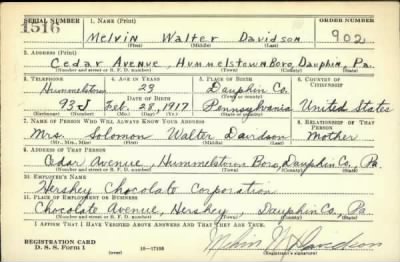 SERIAL NUMBER 1. NAME (Print) ORDER NUMBER
1516 Melvin Walter Davidson 902
(First) (Middle) (Last)
2. ADDRESS (Print)
Cedar Avenue, Hummelstown Boro, Dauphin, Pa.
(Number and street or R. F. D. number) (Town) (County) (State)
3. TELEPHONE 4. AGE IN YEARS 5. PLACE OF BIRTH 6. COUNTRY OF CITIZENSHIP
Hummelstown 23 Dauphin Co.
DATE OF BIRTH
93J Feb. 28, 1917 Pennsylvania United States
(Exchange) (Number) (Mo.) (Day) (Yr.) (State or country)
7. NAME OF PERSON WHO WILL ALWAYS KNOW YOUR ADDRESS 8. RELATIONSHIP OF THAT PERSON
Mrs. Solomon Walter Davidson Mother
(Mr., Mrs., Miss) (First) (Middle) (Last)
9. ADDRESS OF THAT PERSON
Cedar Avenue, Hummelstown Boro, Dauphin Co., Pa.
(Number and street or R. F. D. number) (Town) (County) (State)
10. EMPLOYER'S NAME
Hershey Chocolate Corporation
11. PLACE OF EMPLOYMENT OR BUSINESS
Chocolate Avenue, Hershey, Dauphin Co., Pa.
(Number and street or R. F. D. number) (Town) (County) (State)
I AFFIRM THAT I HAVE VERIFIED ABOVE ANSWERS AND THAT THEY ARE TRUE.
REGISTRATION CARD
D. S. S. Form 1 (over) 16—17105 Melvin W. Davidson
(Registrant's signature)